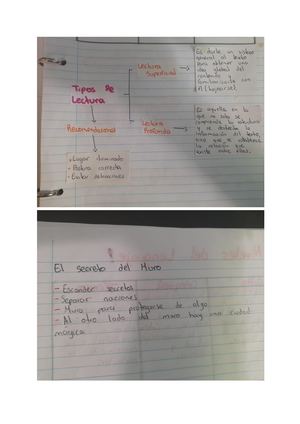 Lectura
Superficial
Es darle un vistazo
general al texto
para obtener una
idea global del
contenido y
familiarizarte con
él (hojearse)
Tipos De
Lectura
Lectura
Profunda
Es aquella en la
que no solo se
comprende la estructura
y se destaca la
información del texto,
sino que se establece
la relación que
existe entre ellas.
Recomendaciones
• Lugar iluminado
• Postura correcta
• Evitar distracciones
El secreto del Muro
- Esconder secretos
- Separar naciones
- Muro para protegerse de algo
- Al otro lado del muro hay una ciudad
mágica